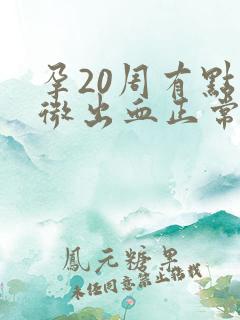 孕20周有點
微出血正常
鳳元糖果
未經同意禁止搭載